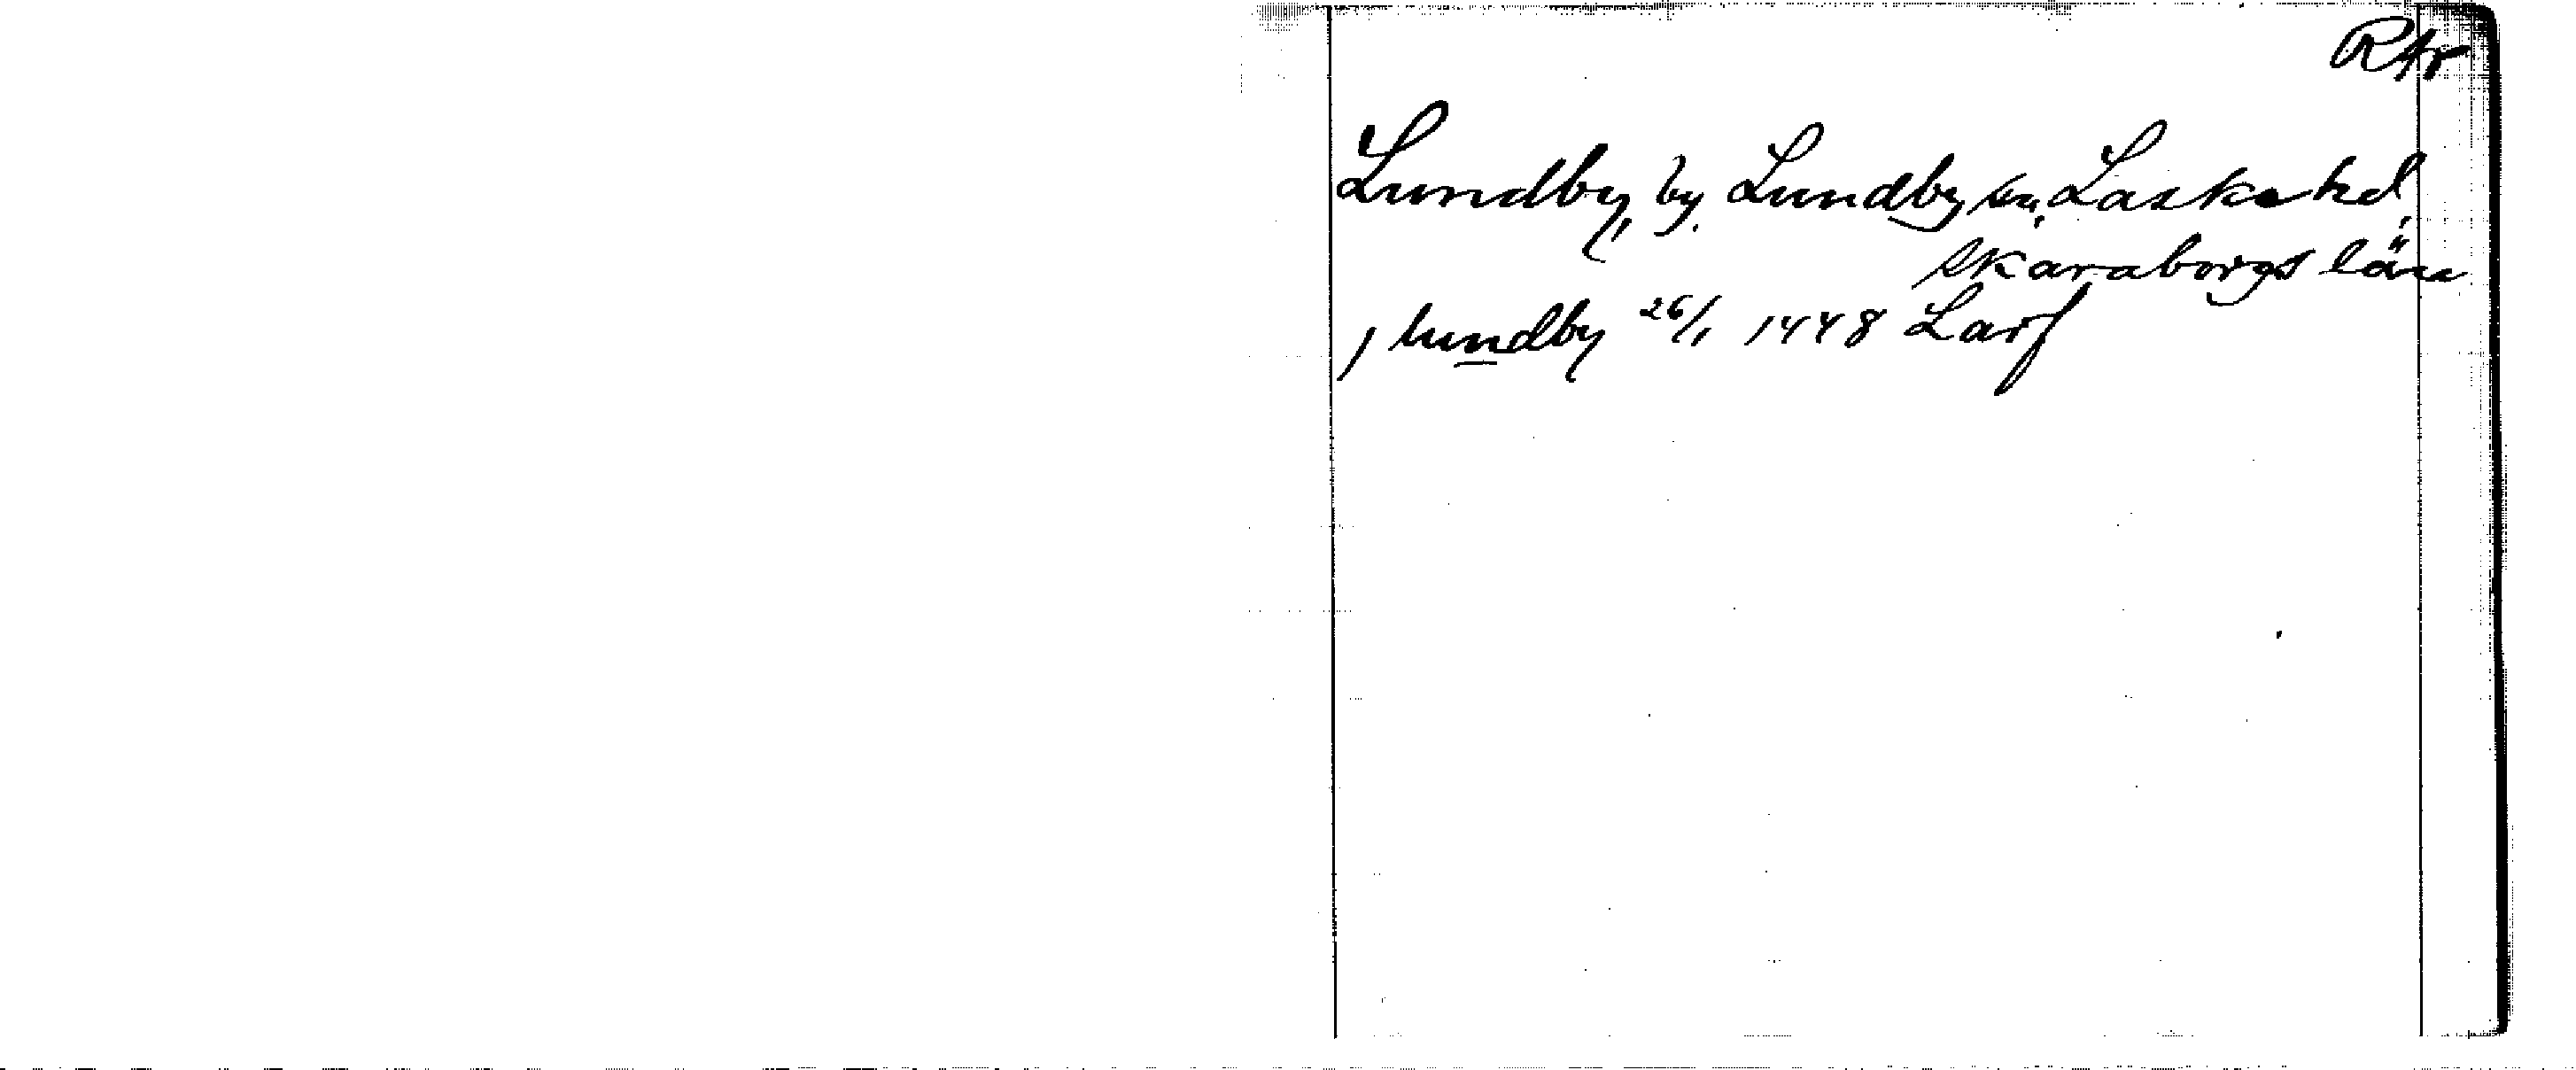 RAp
Lundby, by, Lundby sn, Laske hd,
Skaraborgs län
j lundby 26/1 1448 Larf